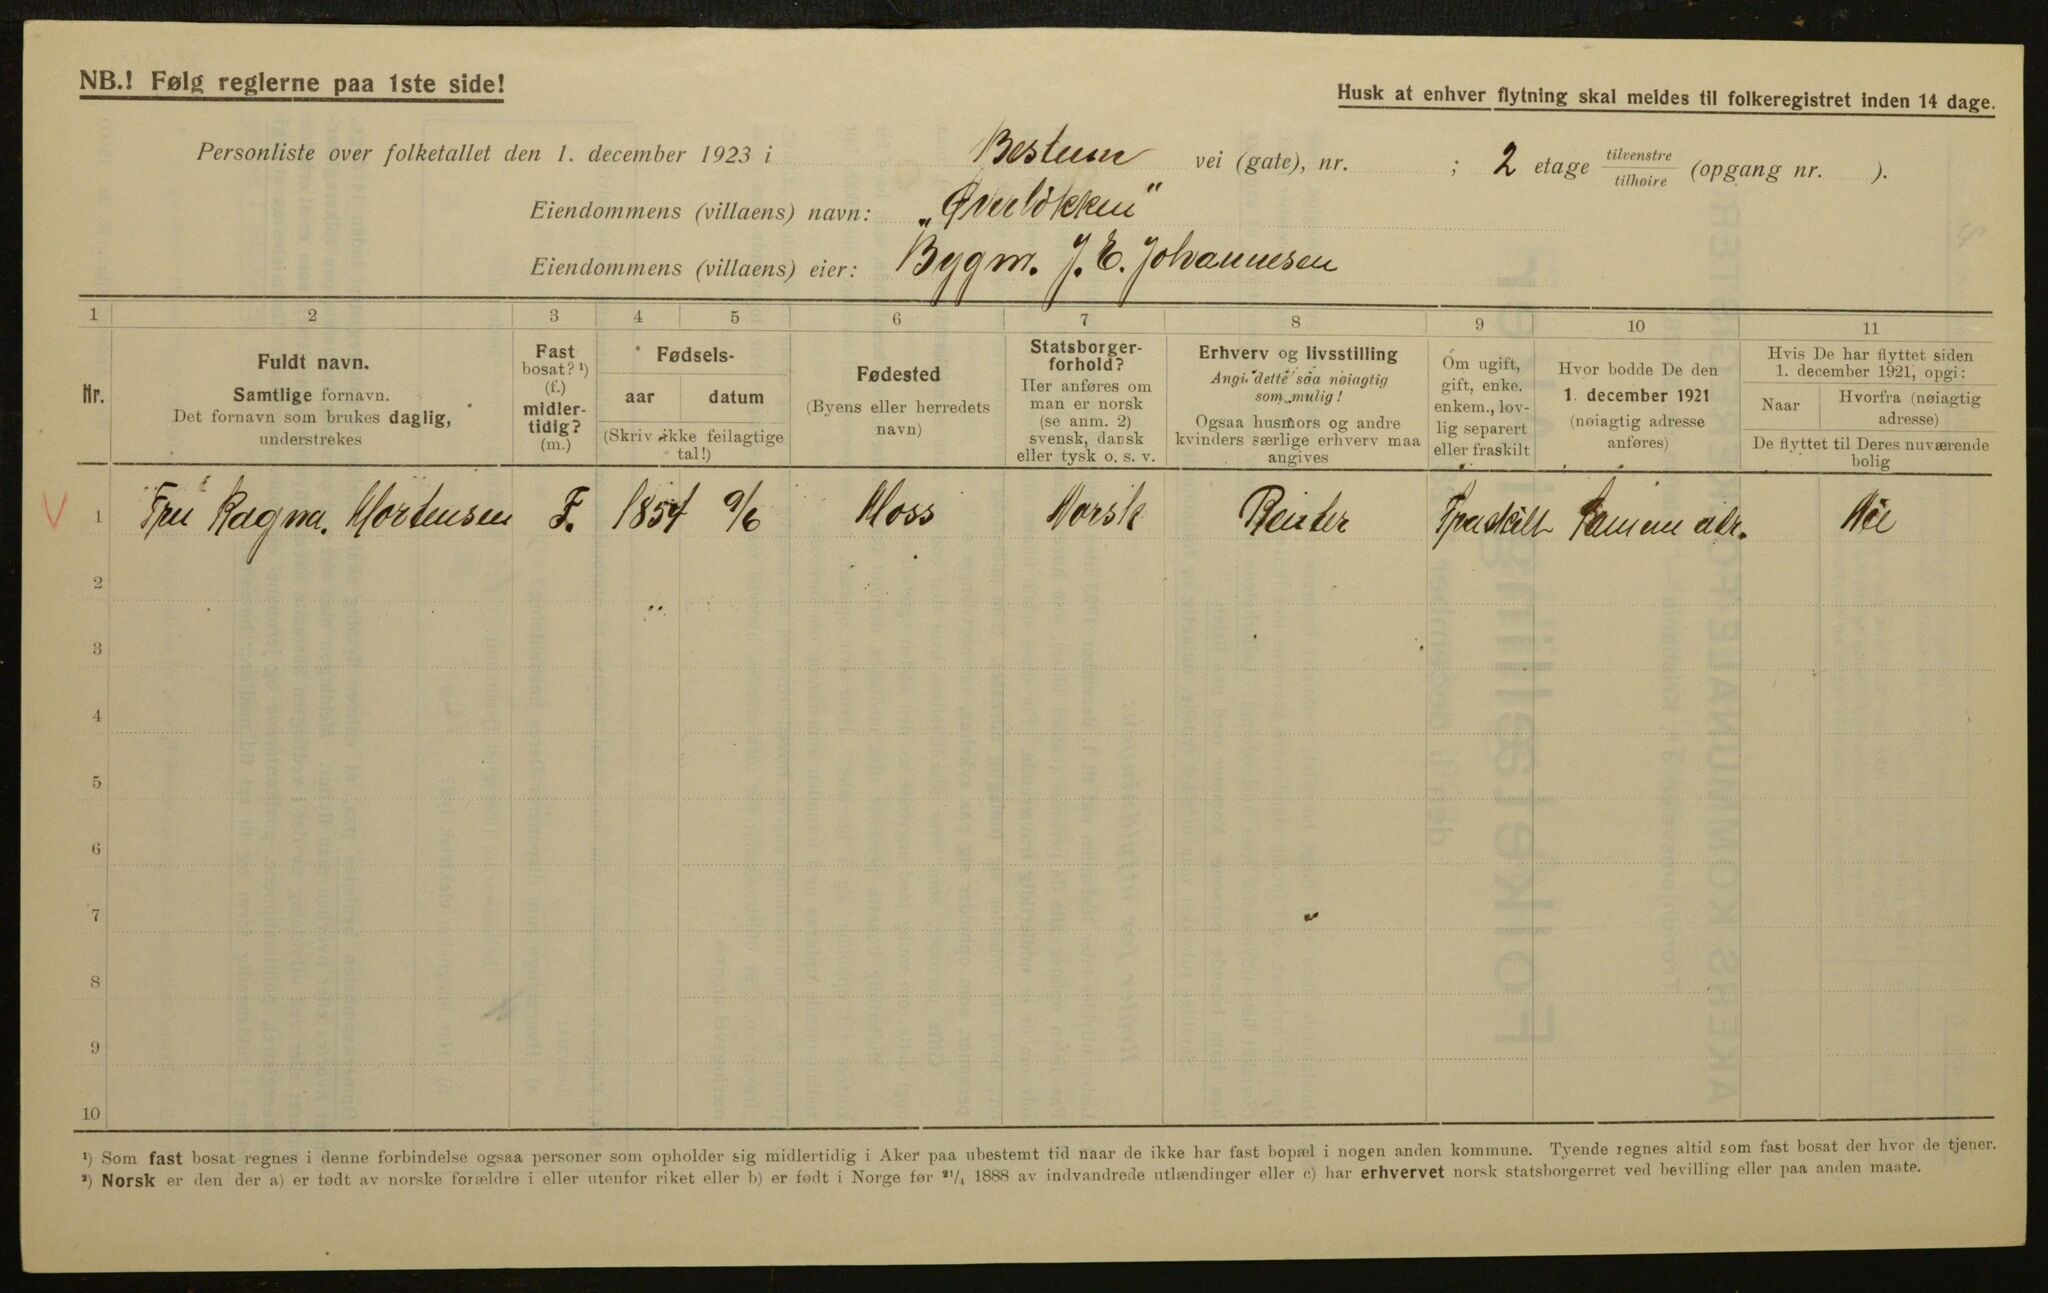 NB.! Følg reglerne paa 1ste side!
Husk at enhver flytning skal meldes til folkeregistret inden 14 dage.
Personliste over folketallet den 1. december 1923 i Bestum vei (gate), nr. ; 2 etage tilvenstre/tilhøire (opgang nr. ).
Eiendommens (villaens) navn: „Øverløkken"
Eiendommens (villaens) eier: Bygm. J. E. Johannesen
1 2 3 4 5 6 7 8 9 10 11
Nr.
Fuldt navn.
Samtlige fornavn.
Det fornavn som brukes daglig,
understrekes
Fast
bosat? ¹)
(f.)
midler-
tidig?
(m.)
Fødsels-
aar datum
(Skriv ikke feilagtige
tal!)
Fødested
(Byens eller herredets
navn)
Statsborger-
forhold?
Her anføres om
man er norsk
(se anm. 2)
svensk, dansk
eller tysk o. s. v.
Erhverv og livsstilling
Angi dette saa nøiagtig
som mulig!
Ogsaa husmors og andre
kvinders særlige erhverv maa
angives
Om ugift,
gift, enke.
enkem., lov-
lig separert
eller fraskilt
Hvor bodde De den
1. december 1921
(nøiagtig adresse
anføres)
Hvis De har flyttet siden
1. december 1921, opgi:
Naar Hvorfra (nøiagtig
adresse)
De flyttet til Deres nuværende
bolig
V 1 Fru Ragna Mortensen F. 1854 9/6 Moss Norsk Renter Fraskilt Samme adr.
2
3
4
5
6
7
8
9
10
¹) Som fast bosat regnes i denne forbindelse ogsaa personer som opholder sig midlertidig i Aker paa ubestemt tid naar de ikke har fast bopæl i nogen anden kommune. Tyende regnes altid som fast bosat der hvor de tjener.
²) Norsk er den der a) er født av norske forældre i eller utenfor riket eller b) er født i Norge før ²¹/₄ 1888 av indvandrede utlændinger eller c) har erhvervet norsk statsborgerret ved bevilling eller paa anden maate.